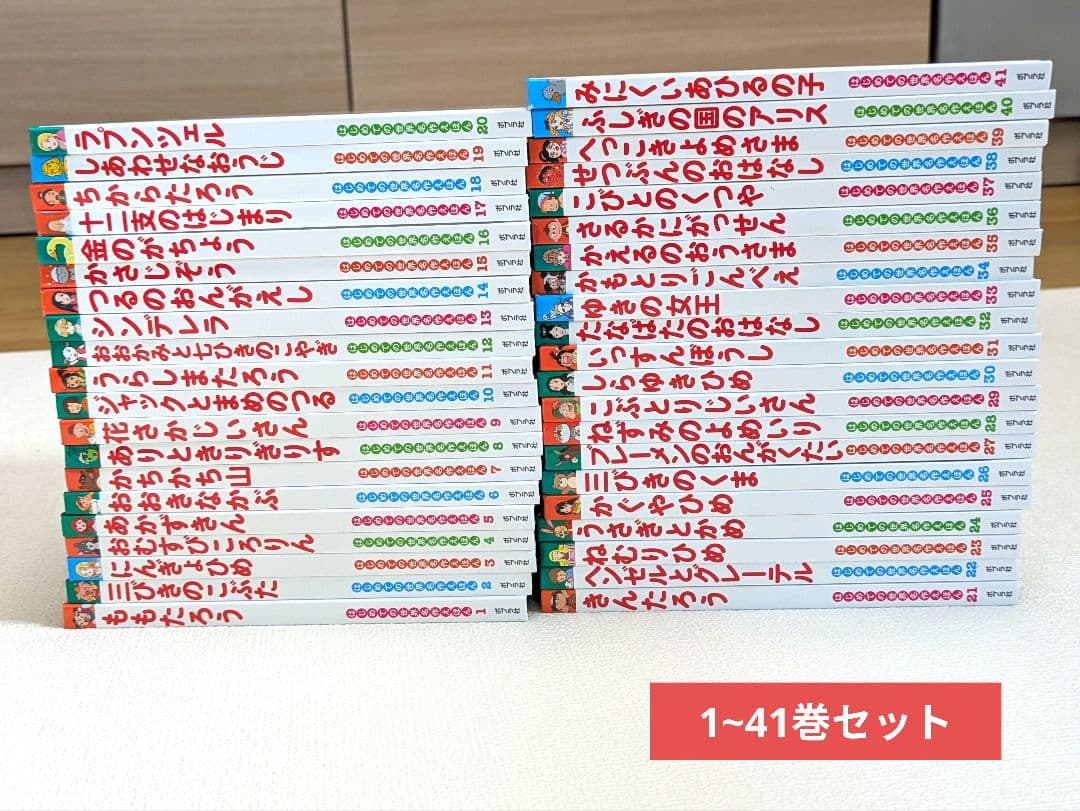 ラプンツェル はじめての世界名作えほん 20 ポプラ社
しあわせなおうじ はじめての世界名作えほん 19 ポプラ社
ちからたろう はじめての世界名作えほん 18 ポプラ社
十二支のはじまり はじめての世界名作えほん 17 ポプラ社
金のがちょう はじめての世界名作えほん 16 ポプラ社
かさじぞう はじめての世界名作えほん 15 ポプラ社
つるのおんがえし はじめての世界名作えほん 14 ポプラ社
シンデレラ はじめての世界名作えほん 13 ポプラ社
おおかみと七ひきのこやぎ はじめての世界名作えほん 12 ポプラ社
うらしまたろう はじめての世界名作えほん 11 ポプラ社
ジャックとまめのつる はじめての世界名作えほん 10 ポプラ社
花さかじいさん はじめての世界名作えほん 9 ポプラ社
ありときりぎりす はじめての世界名作えほん 8 ポプラ社
かちかち山 はじめての世界名作えほん 7 ポプラ社
おおきなかぶ はじめての世界名作えほん 6 ポプラ社
あかずきん はじめての世界名作えほん 5 ポプラ社
おむすびころりん はじめての世界名作えほん 4 ポプラ社
にんぎょひめ はじめての世界名作えほん 3 ポプラ社
三びきのこぶた はじめての世界名作えほん 2 ポプラ社
ももたろう はじめての世界名作えほん 1 ポプラ社
みにくいあひるの子 はじめての世界名作えほん 41 ポプラ社
ふしぎの国のアリス はじめての世界名作えほん 40 ポプラ社
へっこきよめさま はじめての世界名作えほん 39 ポプラ社
せつぶんのおはなし はじめての世界名作えほん 38 ポプラ社
こびとのくつや はじめての世界名作えほん 37 ポプラ社
さるかにがっせん はじめての世界名作えほん 36 ポプラ社
かえるのおうさま はじめての世界名作えほん 35 ポプラ社
かもとりごんべえ はじめての世界名作えほん 34 ポプラ社
ゆきの女王 はじめての世界名作えほん 33 ポプラ社
たなばたのおはなし はじめての世界名作えほん 32 ポプラ社
いっすんぼうし はじめての世界名作えほん 31 ポプラ社
しらゆきひめ はじめての世界名作えほん 30 ポプラ社
こぶとりじいさん はじめての世界名作えほん 29 ポプラ社
ねずみのよめいり はじめての世界名作えほん 28 ポプラ社
ブレーメンのおんがくたい はじめての世界名作えほん 27 ポプラ社
三びきのくま はじめての世界名作えほん 26 ポプラ社
かぐやひめ はじめての世界名作えほん 25 ポプラ社
うさぎとかめ はじめての世界名作えほん 24 ポプラ社
ねむりひめ はじめての世界名作えほん 23 ポプラ社
ヘンゼルとグレーテル はじめての世界名作えほん 22 ポプラ社
きんたろう はじめての世界名作えほん 21 ポプラ社
1~41巻セット